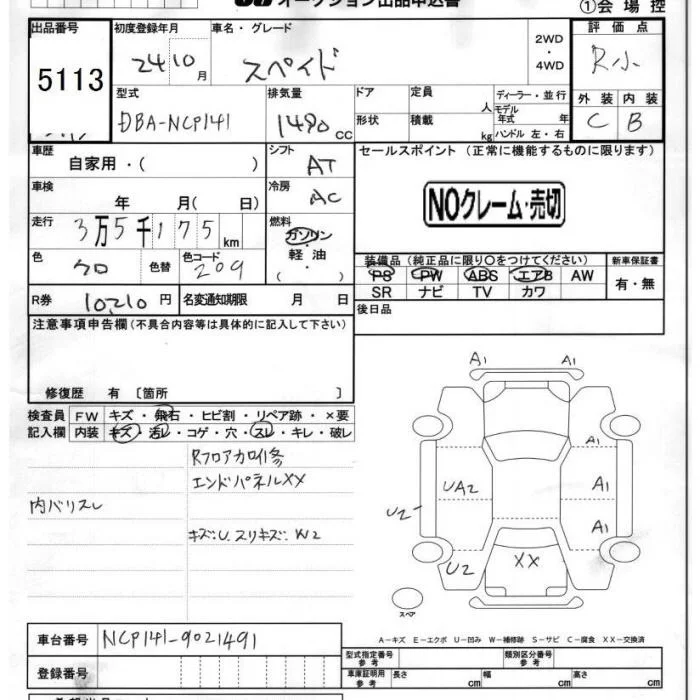 オークション出品申込書
①会場控
出品番号
5113
初度登録年月
24 10 月
車名・グレード
スペイド
2WD
・
4WD
評価点
R小
外装 内装
C B
型式
DBA-NCP141
排気量
1490 cc
ドア
定員
人
ディーラー・並行
モデル年式 年
形状
積載
kg
ハンドル 左・右
車歴
自家用・( )
シフト
AT
セールスポイント (正常に機能するものに限ります)
NOクレーム・売切
車検
年 月( 日)
冷房
AC
走行
3万5千175km
燃料
ガソリン
・
軽油
・
( )
色
クロ
色替
色コード
209
装備品 (純正品に限り○をつけてください)
PS PW ABS エアB AW
SR ナビ TV カワ
新車保証書
有・無
R券 10210円
名変通知期限 月 日
後日品
注意事項申告欄(不具合内容等は具体的に記入して下さい)
修復歴 有 〔箇所 〕
検査員記入欄
FW キズ・飛石・ヒビ割・リペア跡・×要
内装 キズ・汚レ・コゲ・穴・スレ・キレ・破レ
Rフロアカロ修
エンドパネルXX
内バリスレ
キズ:U.スリキズ:W2
A1 A1
A1
UA2 A1
U2 A1
U2 XX
スペア
A-キズ E-エクボ U-凹み W-補修跡 S-サビ C-腐食 XX-交換済
車台番号 NCP141-9021491
登録番号
型式指定番号参考
類別区分番号参考
車庫証明用参考 長さ cm 幅 cm 高さ cm